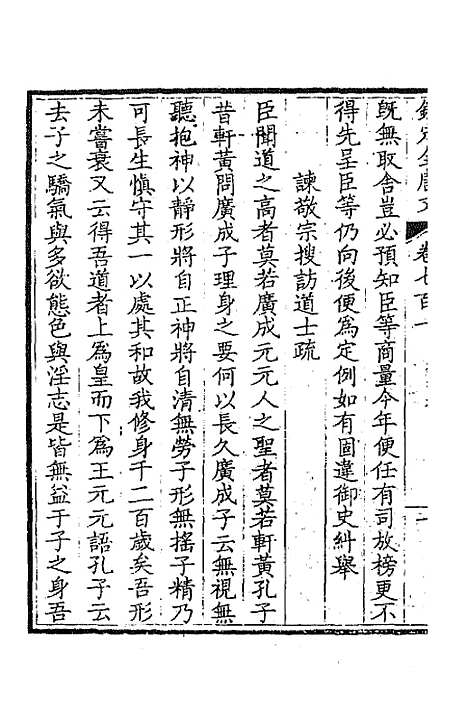 欽定全唐文 卷七百一
旣無取舍豈必預知臣等商量今年便任有司放榜更不
得先呈臣等仍向後便爲定例如有固違御史糾舉
諫敬宗搜訪道士疏
臣聞道之高者莫若廣成元元人之聖者莫若軒黃孔子
昔軒黃問廣成子理身之要何以長久廣成子云無視無
聽抱神以靜形將自正神將自清無勞子形無搖子精乃
可長生愼守其一以處其和故我修身千二百歲矣吾形
未嘗衰又云得吾道者上爲皇而下爲王元元語孔子云
去子之驕氣與多欲態色與淫志是皆無益于子之身吾